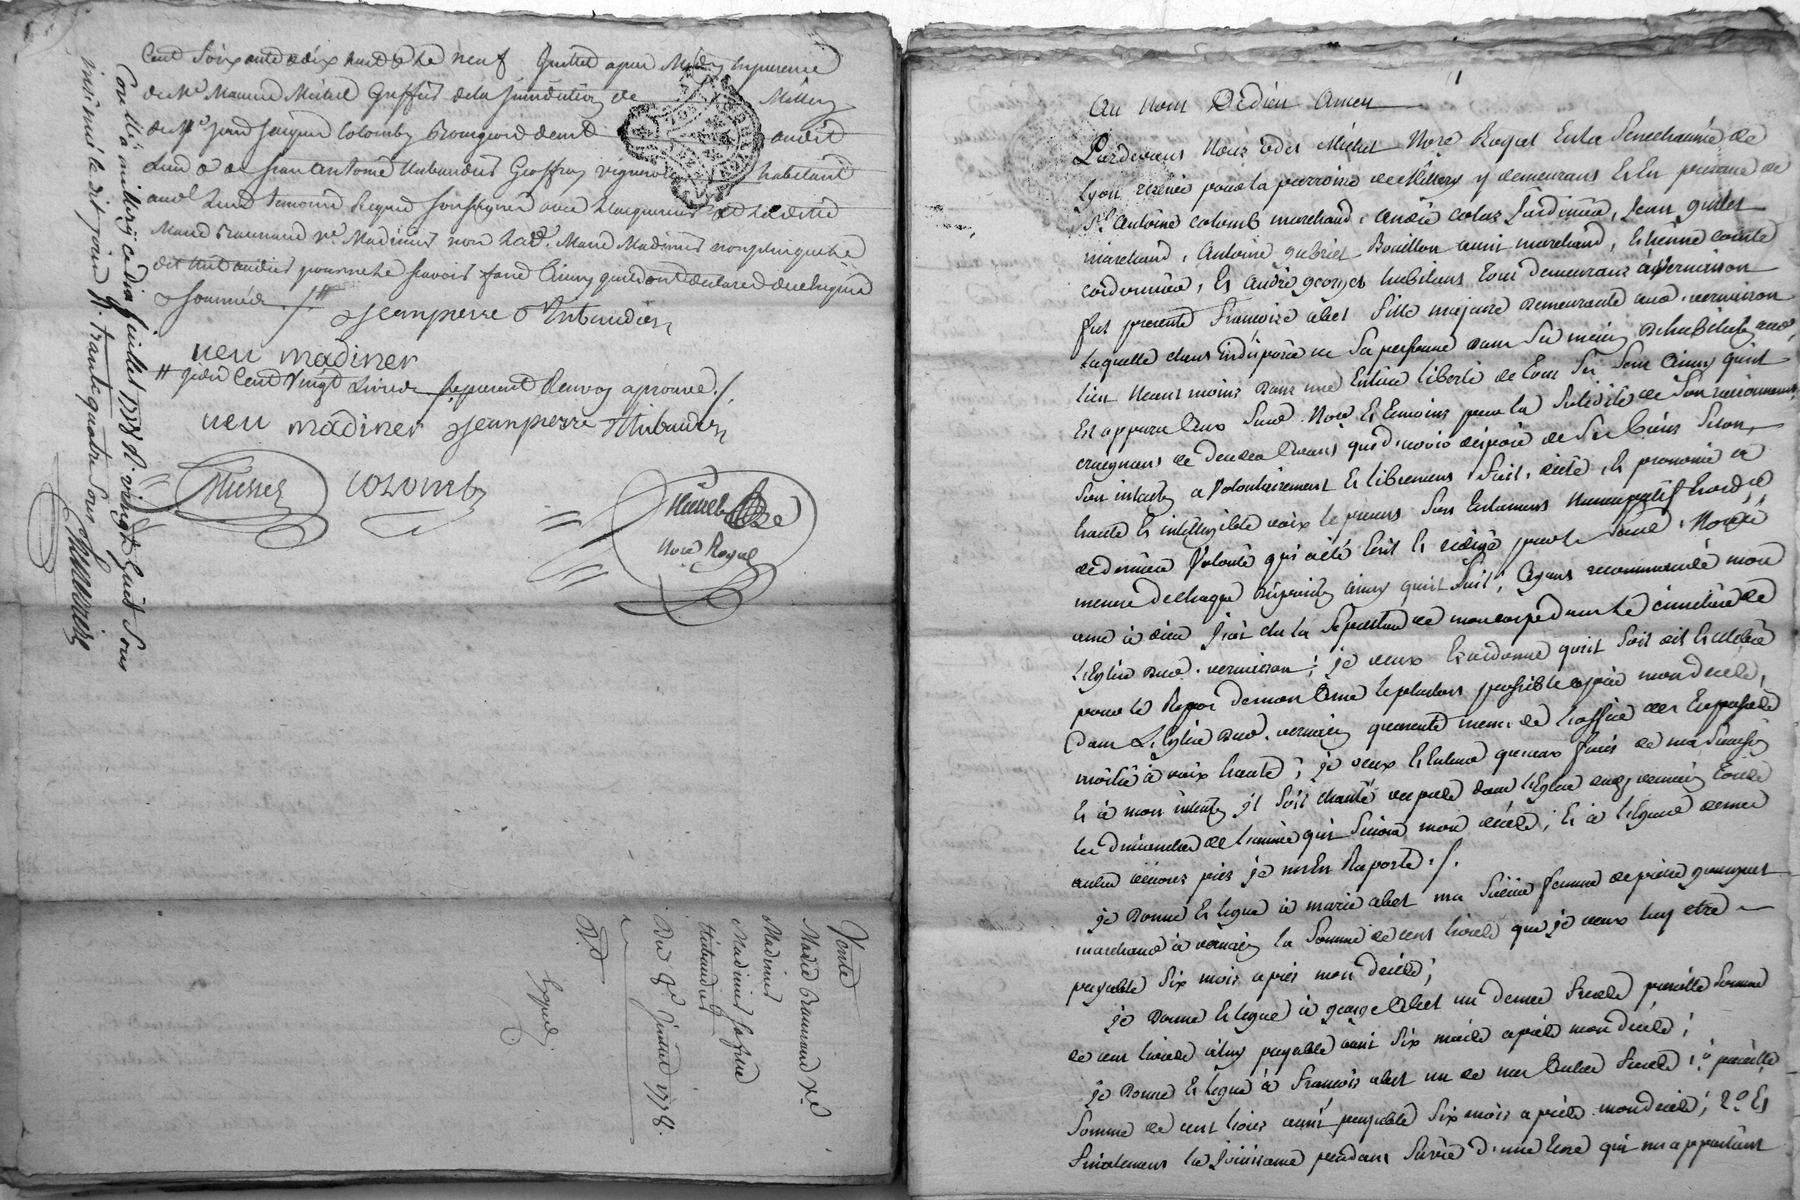 Cent Soixante et dix huit Et le neuf Juillet apres Midy En presence
de Me Maurice Meitral Greffier de la Jurisdiction de Millery
de Sr Jean Jacques Colomby Bourgeois dem.t audit
Lieu & de Jean Antoine Thibaudier Geoffray vigneron habitant
aud. Lieu temoins Requis soussignés avec led. & ladite
Marie Braunand Ve. Madinier non lad. Marie Madinier non plus que le
dit Thibaudier pour ne le scavoir faire Ainsy qu'ils ont déclaré de ce Enquis
& Sommés ./. #
Jeanpierre Thibaudier
veu madiner
# Cent Vingt Livres Renvoy aprouvé ./.
veu madiner Jeanpierre Thibaudier
COLOMBy
Nore Royal
Con.lé à millery ce dix Juillet 1778 R. vingt huit Sous
insinué le dit jour R. trante quatre Sous
Vente
Marie Braunand Ve.
Madinier
Madinier sa fille
Thibaudier
Du 9e. Juillet 1778.
Exped.
Au Nom De Dieu Amen
Pardevant Nous Michel Nore Royal En la Senechaussée de
Lyon reservé pour la parroisse de Millery y demeurant Et En presence de
Sr. Antoine colomb marchand, andré colas Jardinier, Jean
marchand, Antoine gabriel Bouillon aussi marchand, Etienne comte
cordonnier, Et andré georges habitans Tous demeurans à Vernaison
fut presente Françoise abet fille majeure demeurante aud. vernaison
laquelle etans indisposée de sa personne dans Sa maison audit
lieu Neans moins dans une Entiere liberté de tous Ses Sens Ainsy qu'il
Est apparu Aux Susd. Nore. Et temoins par la Solidité de Son raisonnement,
craignans de deceder avans que d'avoir disposé de Ses biens Selon
Son intention a Volontairement Et librement fait, dicté, Et prononcé à
haute Et intelligible voix le presens Son testamens Nuncupatif Et ordre
de derniere Volonté qui a été Ecrit Et redigé par le Susd. Nore
mesure de chaque Expression ainsy qu'il Suit; Ayans recommandé mon
ame à dieu la Sepulture de mon corps dans le cimetiere de
L'Eglise dud. vernaison; je veux Et ordonne qu'il Soit dit Et célébré
pour le Repos de mon Ame le plutos possible après mon décès,
Dans L'Eglise dud. vernaison quarente messes de l'office des trepassés
moitié à voix haute; je veux Et Entend qu'aux frais de ma Succession
Et à mon intention il Soit chanté vespres dans l'Eglise dud. vernaison tous
les dimanches de l'année qui Suivra mon décès; Et à l'egard de mes
autres oeuvres pies je m'En Raporte ./.
je Donne Et legue à marie abet ma niéce femme de pierre
marchand à vernaison la Somme de cent livres que je veux luy etre
payable Six mois après mon décès;
je Donne Et legue à george Abet un de mes neveux pareille Somme
de cent livres à luy payable aussi Six mois après mon décès;
je Donne Et legue à François abet un de mes Autres neveux; 1.° pareille
Somme de cent livres aussi payable Six mois après mon décès; 2.° Et
finalement la Jouissance pendant Sa vie d'une terre qui m'appartient